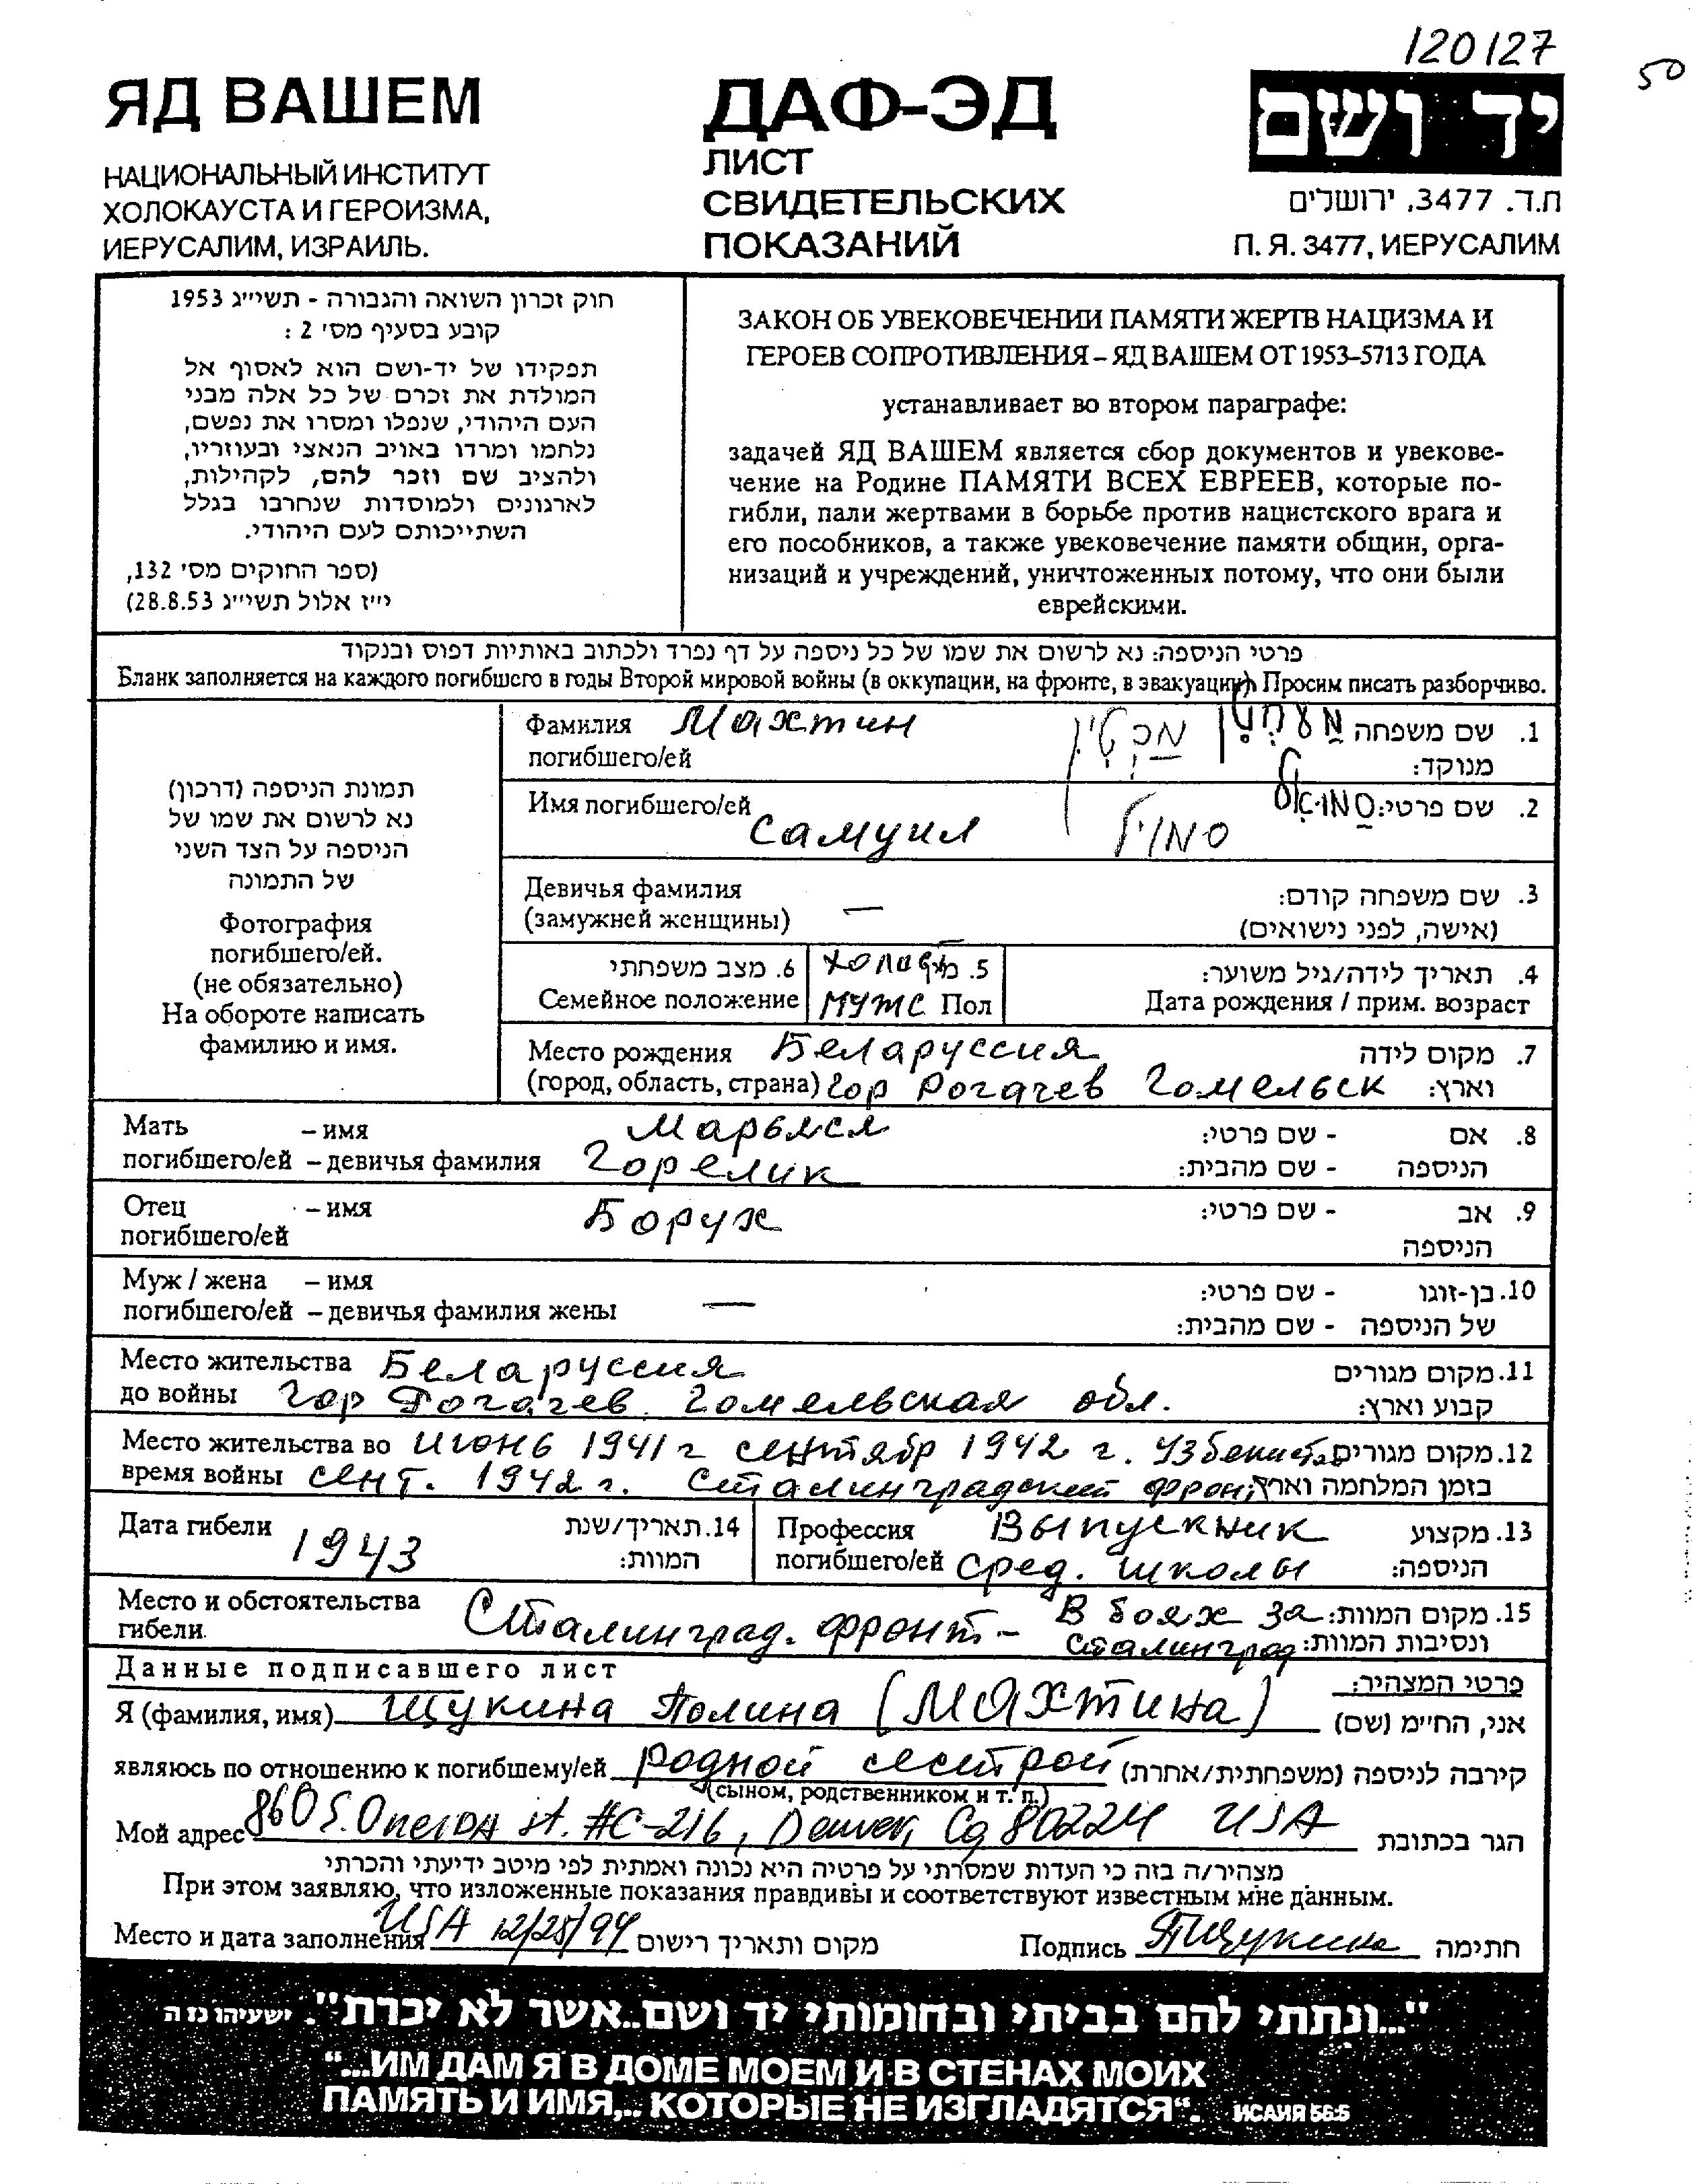 120127
50
ЯД ВАШЕМ
НАЦИОНАЛЬНЫЙ ИНСТИТУТ
ХОЛОКАУСТА И ГЕРОИЗМА,
ИЕРУСАЛИМ, ИЗРАИЛЬ.
ДАФ-ЭД
ЛИСТ
СВИДЕТЕЛЬСКИХ
ПОКАЗАНИЙ
יד ושם
ת.ד. 3477, ירושלים
П. Я. 3477, ИЕРУСАЛИМ
חוק זכרון השואה והגבורה - תשי״ג 1953
קובע בסעיף מס׳ 2 :
תפקידו של יד-ושם הוא לאסוף אל
המולדת את זכרם של כל אלה מבני
העם היהודי, שנפלו ומסרו את נפשם,
נלחמו ומרדו באויב הנאצי ובעוזריו,
ולהציב שם וזכר להם, לקהילות,
לארגונים ולמוסדות שנחרבו בגלל
השתייכותם לעם היהודי.
(ספר החוקים מס׳ 132,
י״ז אלול תשי״ג 28.8.53)
ЗАКОН ОБ УВЕКОВЕЧЕНИИ ПАМЯТИ ЖЕРТВ НАЦИЗМА И
ГЕРОЕВ СОПРОТИВЛЕНИЯ – ЯД ВАШЕМ ОТ 1953–5713 ГОДА
устанавливает во втором параграфе:
задачей ЯД ВАШЕМ является сбор документов и увекове-
чение на Родине ПАМЯТИ ВСЕХ ЕВРЕЕВ, которые по-
гибли, пали жертвами в борьбе против нацистского врага и
его пособников, а также увековечение памяти общин, орга-
низаций и учреждений, уничтоженных потому, что они были
еврейскими.
פרטי הניספה: נא לרשום את שמו של כל ניספה על דף נפרד ולכתוב באותיות דפוס ובנקוד
Бланк заполняется на каждого погибшего в годы Второй мировой войны (в оккупации, на фронте, в эвакуации). Просим писать разборчиво.
תמונת הניספה (דרכון)
נא לרשום את שמו של
הניספה על הצד השני
של התמונה
Фотография
погибшего/ей.
(не обязательно)
На обороте написать
фамилию и имя.
Фамилия Махтин מכטין 1. שם משפחה
погибшего/ей מנוקד:
Имя погибшего/ей 2. שם פרטי:
Самуил סמויל
Девичья фамилия 3. שם משפחה קודם:
(замужней женщины) — (אישה, לפני נישואים)
6. מצב משפחתי холост 5. מין 4. תאריך לידה/גיל משוער:
Семейное положение муж Пол Дата рождения / прим. возраст
Место рождения Беларуссия 7. מקום לידה
(город, область, страна) гор Рогачев Гомельск וארץ:
Мать – имя Марьяся 8. אם - שם פרטי:
погибшего/ей – девичья фамилия Горелик הניספה - שם מהבית:
Отец – имя Борух 9. אב - שם פרטי:
погибшего/ей הניספה
Муж / жена – имя 10. בן-זוגו - שם פרטי:
погибшего/ей – девичья фамилия жены — של הניספה - שם מהבית:
Место жительства Беларуссия 11. מקום מגורים
до войны гор Рогачев Гомельская обл. קבוע וארץ:
Место жительства во июнь 1941 г сентябр 1942 г. 12. מקום מגורים
время войны сент. 1942 г. Сталинградский фронт בזמן המלחמה וארץ
Дата гибели 1943 14. תאריך/שנת המוות:
Профессия Выпускник 13. מקצוע
погибшего/ей сред. школы הניספה:
Место и обстоятельства Сталинград. фронт – В боях за 15. מקום המוות:
гибели. Сталинград ונסיבות המוות:
Данные подписавшего лист פרטי המצהיר:
Я (фамилия, имя) Щукина Полина (Махтина) אני, החי״מ (שם)
являюсь по отношению к погибшему/ей родной сестрой קירבה לניספה (משפחתית/אחרת)
(сыном, родственником и т. п.)
Мой адрес 860 S. Oneida st. #C-216, Denver, Co 80224 USA הגר בכתובת
מצהיר/ה בזה כי העדות שמסרתי על פרטיה היא נכונה ואמתית לפי מיטב ידיעתי והכרתי
При этом заявляю, что изложенные показания правдивы и соответствуют известным мне данным.
Место и дата заполнения USA 12/25/94 מקום ותאריך רישום Подпись ПЩукина חתימה
"...ונתתי להם בביתי ובחומותי יד ושם..אשר לא יכרת". ישעיהו נז ה
“...ИМ ДАМ Я В ДОМЕ МОЕМ И В СТЕНАХ МОИХ
ПАМЯТЬ И ИМЯ,.. КОТОРЫЕ НЕ ИЗГЛАДЯТСЯ“. ИСАИЯ 56:5